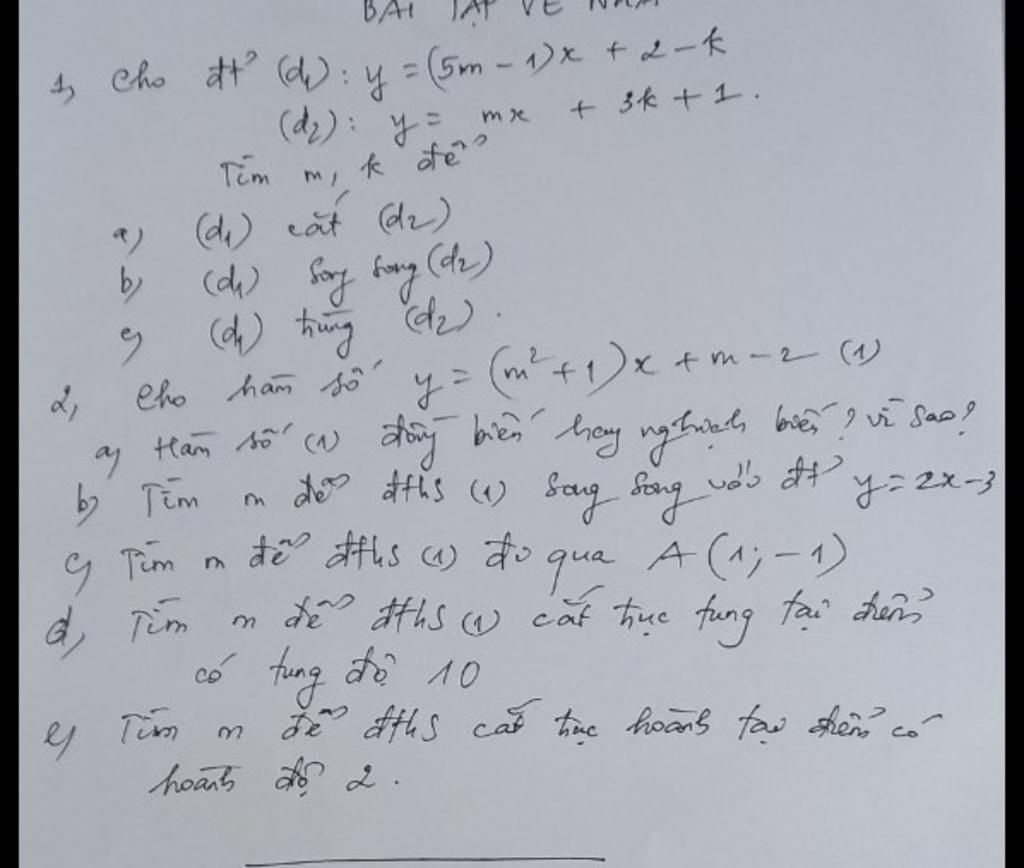 BÀI TẬP VỀ NHÀ
1, Cho đt² (d₁): y = (5m - 1)x + 2 - k
(d₂): y = mx + 3k + 1.
Tìm m, k để
a) (d₁) cắt (d₂)
b) (d₁) song song (d₂)
c) (d₁) trùng (d₂).
2, Cho hàm số y = (m² + 1)x + m - 2 (1)
a) Hàm số (1) đồng biến hay nghịch biến? vì sao?
b) Tìm m để đths (1) song song với đt y = 2x - 3
c) Tìm m để đths (1) đi qua A(1; -1)
d, Tìm m để đths (1) cắt trục tung tại điểm
có tung độ 10
e) Tìm m để đths cắt trục hoành tại điểm có
hoành độ 2.